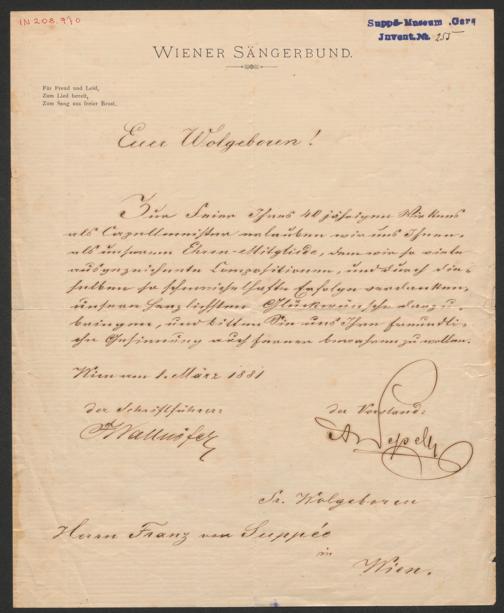 IN 208.970
Suppé-Museum Gars
Invent.№ 255
WIENER SÄNGERBUND.
Für Freud und Leid,
Zum Lied bereit,
Zum Sang aus freier Brust.
Euer Wolgeboren!
Zur Feier Ihres 40 jährigen Wirkens
als Capellmeister erlauben wir uns Ihnen,
als unserem Ehren-Mitgliede, dem wir so viele
ausgezeichnete Compositionen, und durch die-
selben so schmeichelhafte Erfolge verdanken,
unsern herzlichsten Glückwunsch darzu-
bringen, und bitten Sie uns Ihre freundli-
che Gesinnung auch ferner bewahren zu wollen.
Wien am 1. März 1881
der Schriftführer: der Vorstand:
Sr. Wolgeboren
Herrn Franz von Suppée
in
Wien.